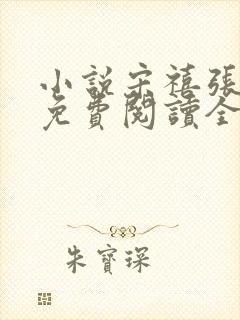 小說宋禧張
免費閱讀全
朱寶琛